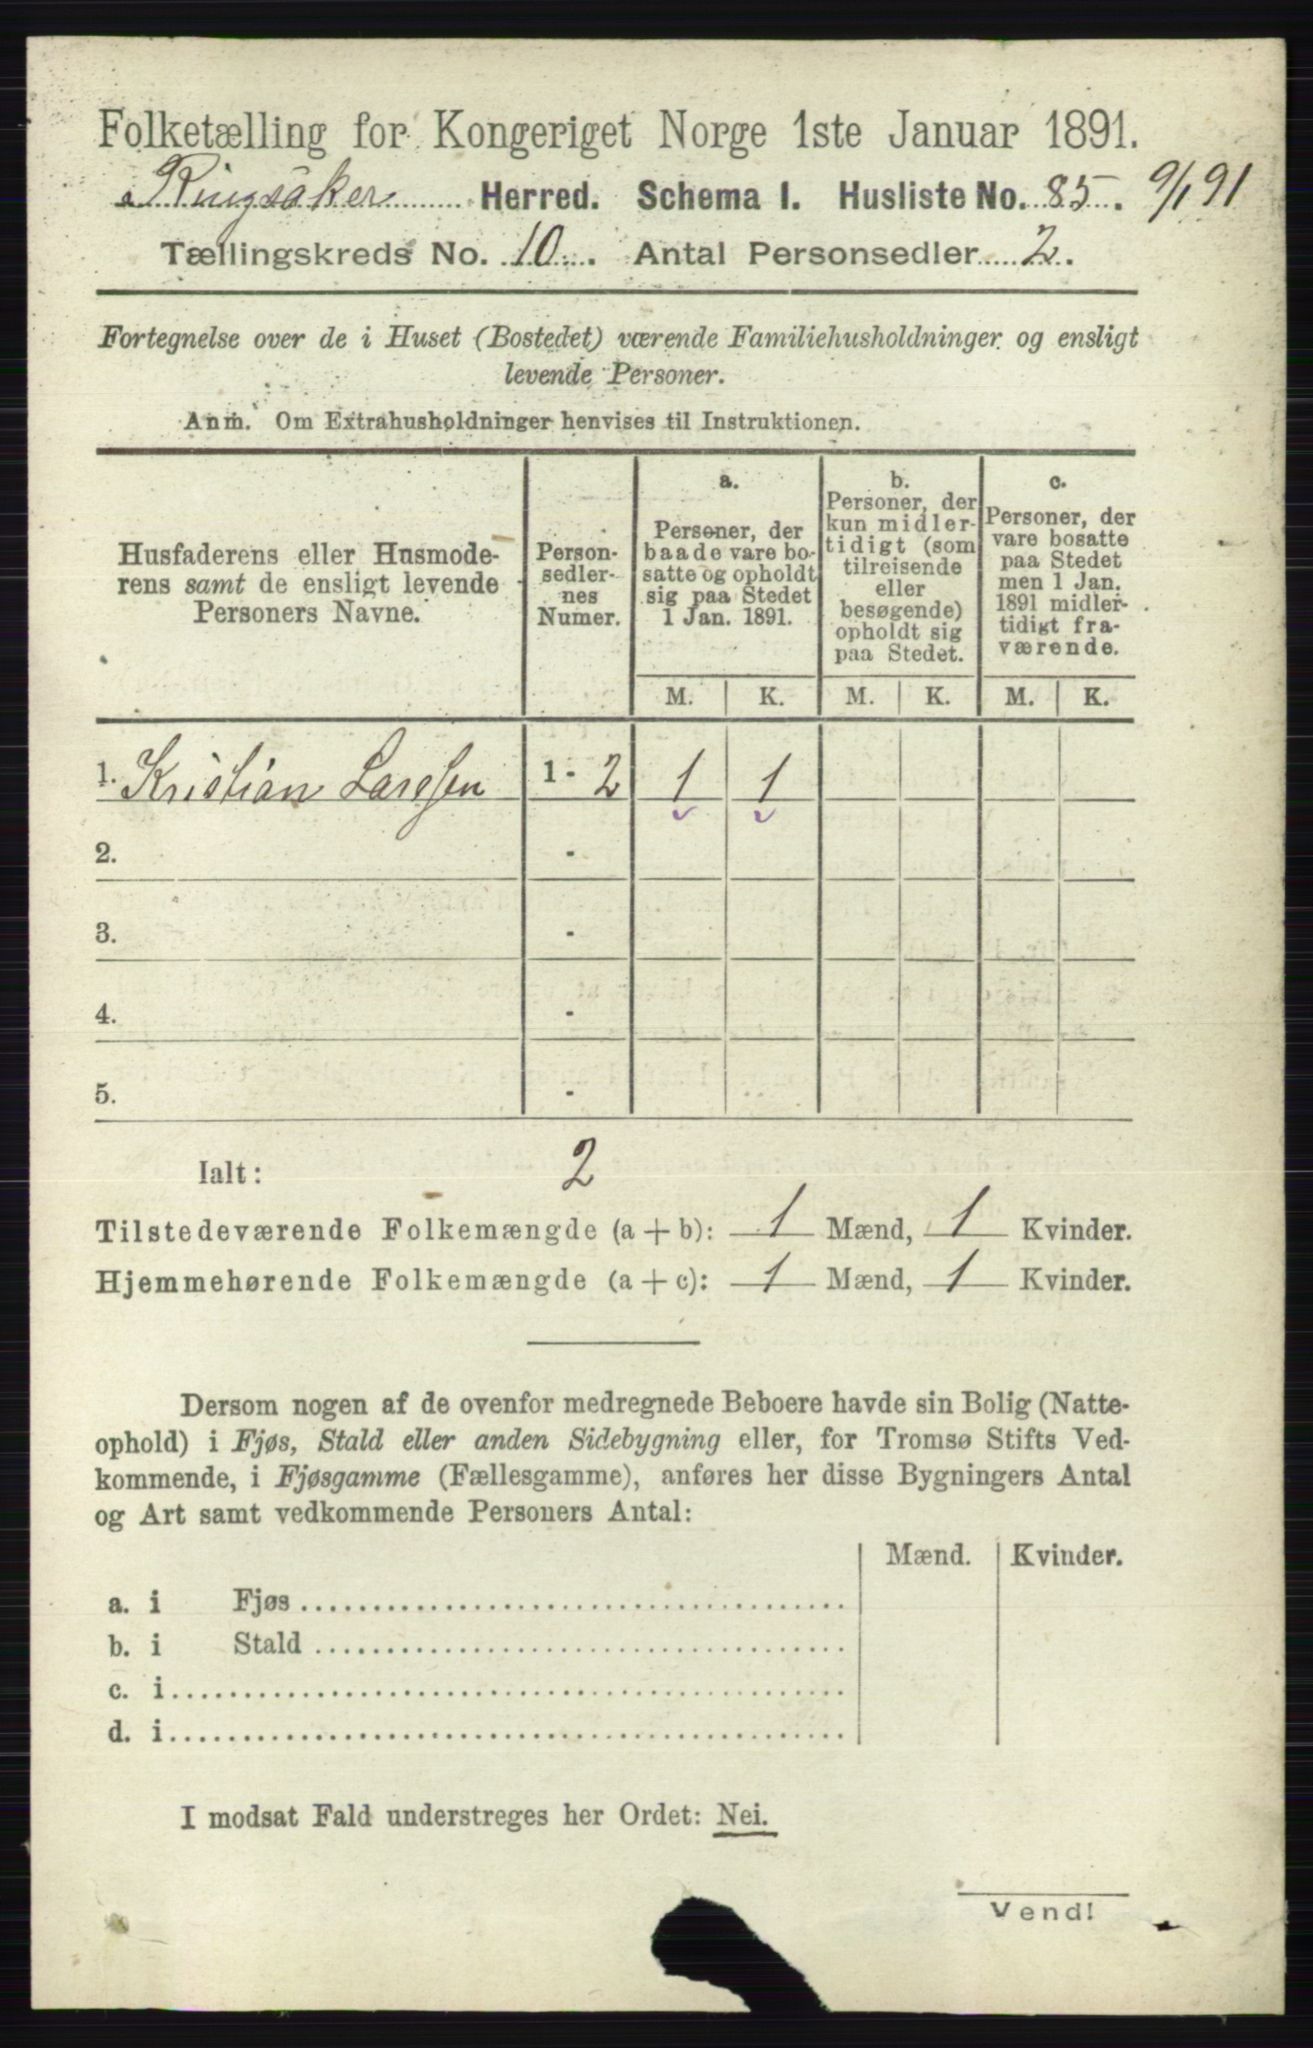 Folketælling for Kongeriget Norge 1ste Januar 1891.
Ringsaker Herred. Schema I. Husliste No. 85. 9/1 91
Tællingskreds No. 10. Antal Personsedler 2.
Fortegnelse over de i Huset (Bostedet) værende Familiehusholdninger og ensligt
levende Personer.
Anm. Om Extrahusholdninger henvises til Instruktionen.
Husfaderens eller Husmode-
rens samt de ensligt levende
Personers Navne.
Person-
sedler-
nes
Numer.
a.
Personer, der
baade vare bo-
satte og opholdt
sig paa Stedet
1 Jan. 1891.
b.
Personer, der
kun midler-
tidigt (som
tilreisende
eller
besøgende)
opholdt sig
paa Stedet.
c.
Personer, der
vare bosatte
paa Stedet
men 1 Jan.
1891 midler-
tidigt fra-
værende.
M. K. M. K. M. K.
1. Kristian Larssen 1 - 2 1 1
2. -
3. -
4. -
5. -
Ialt: 2
Tilstedeværende Folkemængde (a + b): 1 Mænd, 1 Kvinder.
Hjemmehørende Folkemængde (a + c): 1 Mænd, 1 Kvinder.
Dersom nogen af de ovenfor medregnede Beboere havde sin Bolig (Natte-
ophold) i Fjøs, Stald eller anden Sidebygning eller, for Tromsø Stifts Ved-
kommende, i Fjøsgamme (Fællesgamme), anføres her disse Bygningers Antal
og Art samt vedkommende Personers Antal:
Mænd. Kvinder.
a. i Fjøs
b. i Stald
c. i
d. i
I modsat Fald understreges her Ordet: Nei.
Vend!